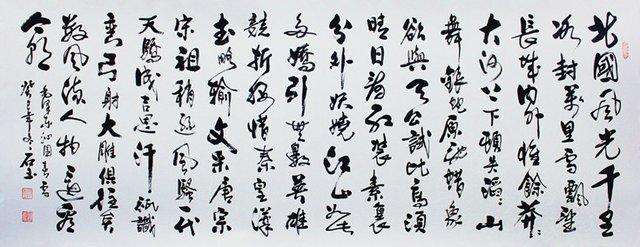 北國風光千里
冰封萬里雪飄望
長城內外惟餘莽莽
大河上下頓失滔滔山
舞銀蛇原馳蠟象
欲與天公試比高須
晴日看紅裝素裹
分外妖嬈江山如此
多嬌引無數英雄
競折腰惜秦皇漢
武略輸文采唐宗
宋祖稍遜風騷一代
天驕成吉思汗祇識
彎弓射大雕俱往矣
數風流人物還看
今朝
毛澤東沁園春雪
癸巳年